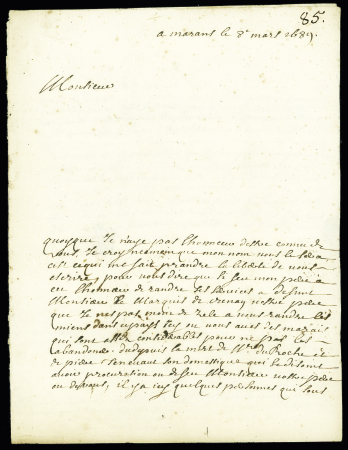 85.
a marans le 8e mars 1689.
Monsieur
quoyque Je n'aye pas l'honneur d'estre connu de
vous, Je croy neanmoins que mon nom vous le sera,
c'est ce qui me fait prandre la liberté de vous
escrire, pour vous dire que le feu mon père a
eu l'honneur de randre ses services a defunt
Monsieur le Marquis de crenay vostre père
que Je n'ay pas moins de zele a vous randre les
miens dans ce pays icy ou vous avez des marais
qui sont assez considerables pour ne pas les
abandonner du depuis la mort de Mr. du Roche et
de pierre son domestique qui se disoit
avoir procuration de feu Monsieur vostre père
ou defunt, il y a icy quelques personnes qui sont